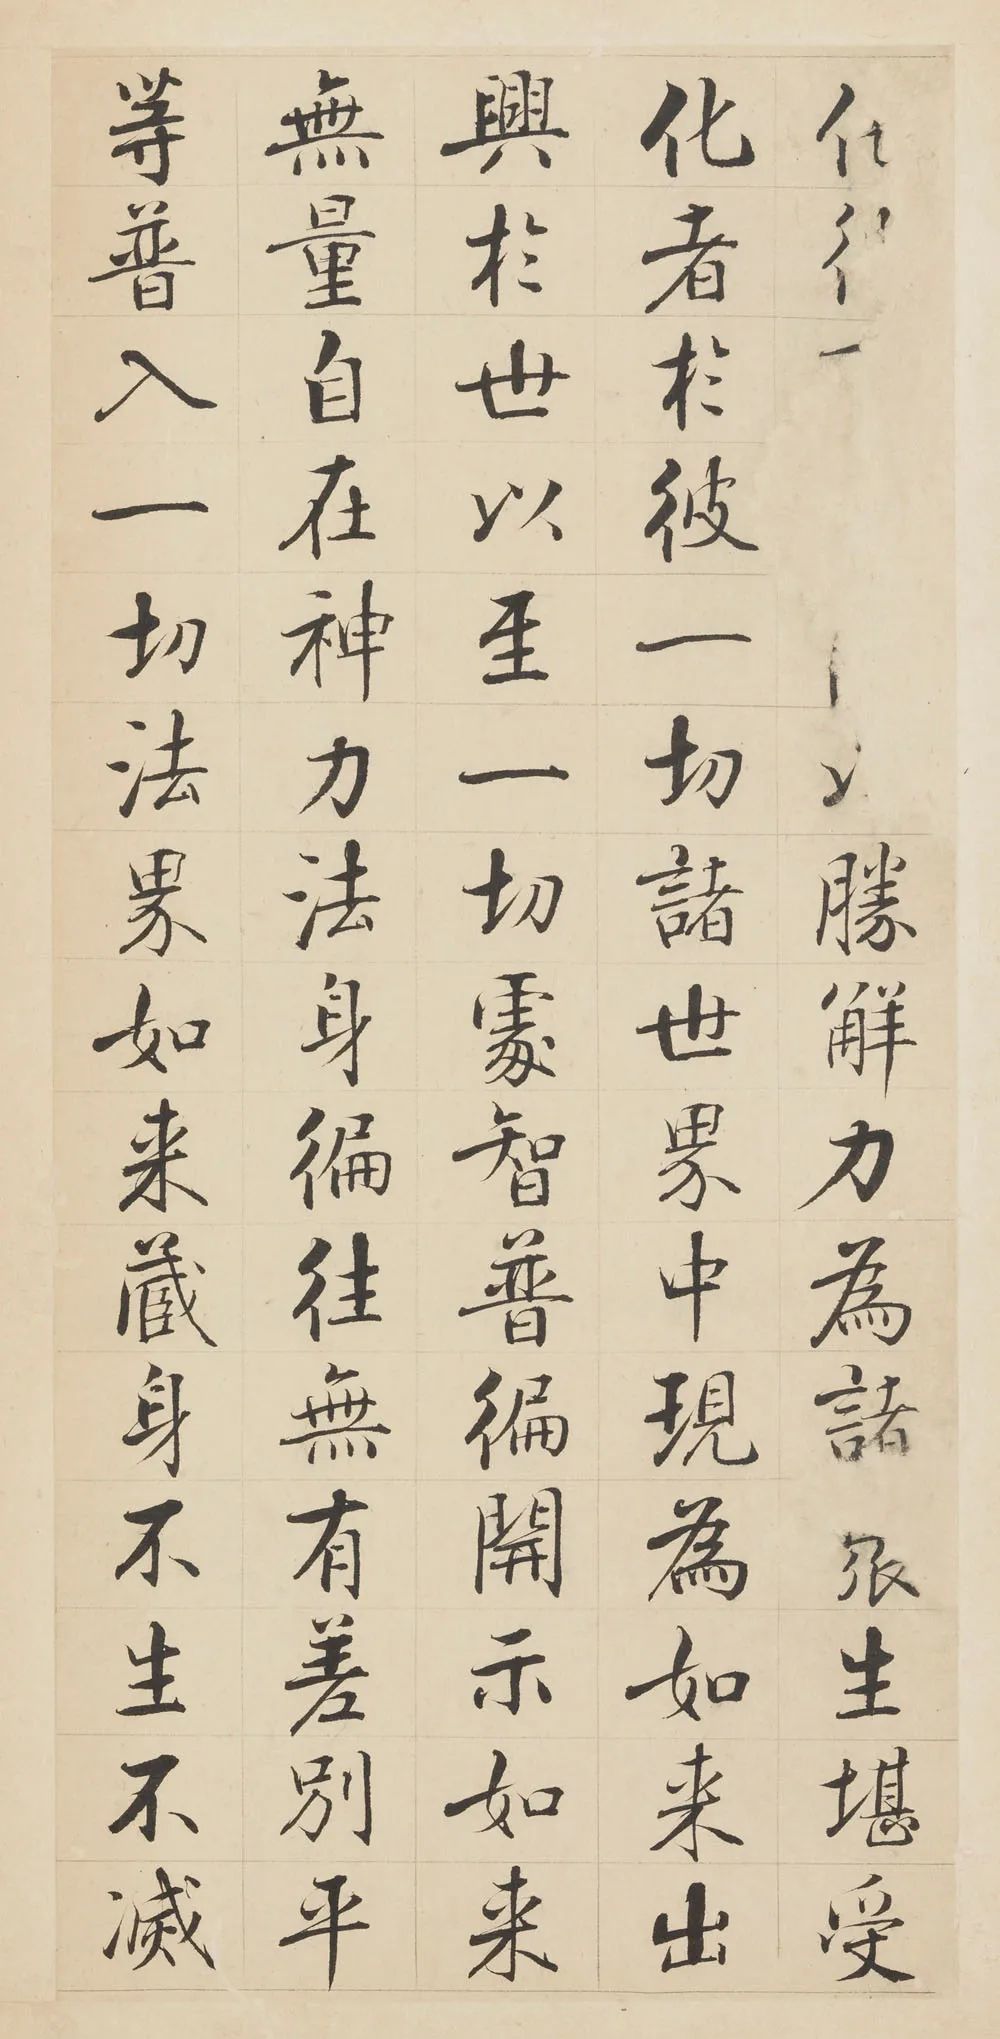 一勝解力為諸生堪受
化者於彼一切諸世界中現為如来出
興於世以至一切處智普徧開示如来
無量自在神力法身徧往無有差別平
等普入一切法界如来藏身不生不滅